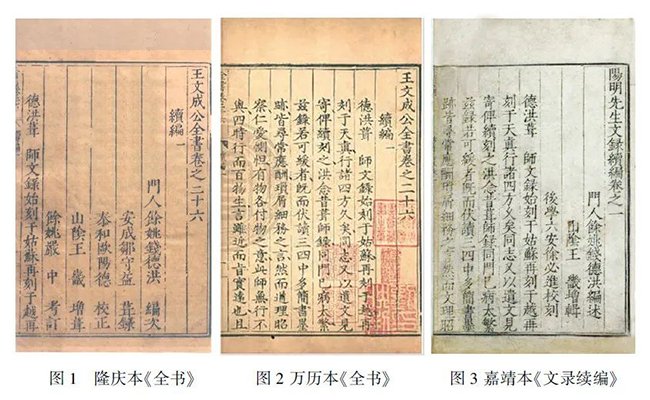 王文成公全書卷之二十六
續編一
門人餘姚錢德洪 編次
安成鄒守益 葺錄
泰和歐陽德 校正
山陰王 畿 增葺
餘姚嚴 中 考訂
德洪葺 師文錄始刻于姑蘇再刻于越再
图1 隆庆本《全书》
王文成公全書卷之二十六
續編一
德洪葺 師文錄始刻于姑蘇再刻于越再
刻于天真行諸四方久矣同志又以遺文見
寄俾續刻之洪念昔葺師錄同門已病太繁
茲錄若可緩者既而伏讀三四中多簡書墨
跡皆尋常應酬瑣屑細務之言然而道理昭
察仁愛惻怛有物各付物之意此師無行不
與四時行而百物生言雖近而旨實遠也且
图2 万历本《全书》
陽明先生文錄續編卷之一
門人餘姚錢德洪編述
山陰王 畿增輯
後學六安徐必進校刻
德洪葺 師文錄始刻于姑蘇再刻于越再
刻于天真行諸四方久矣同志又以遺文見
寄俾續刻之洪念昔葺師錄同門已病太繁
茲錄若可緩者既而伏讀三四中多簡書墨
跡皆尋常應酬瑣屑細務之言然而文理昭
图3 嘉靖本《文录续编》